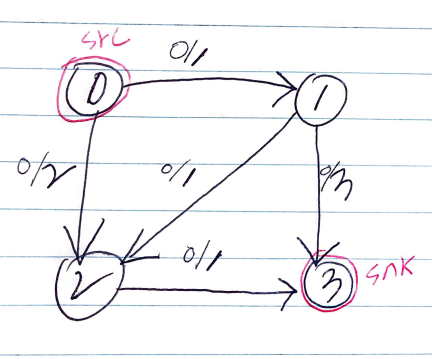 src
0/1
0
1
0/2
0/1
0/3
0/1
2
3
snk